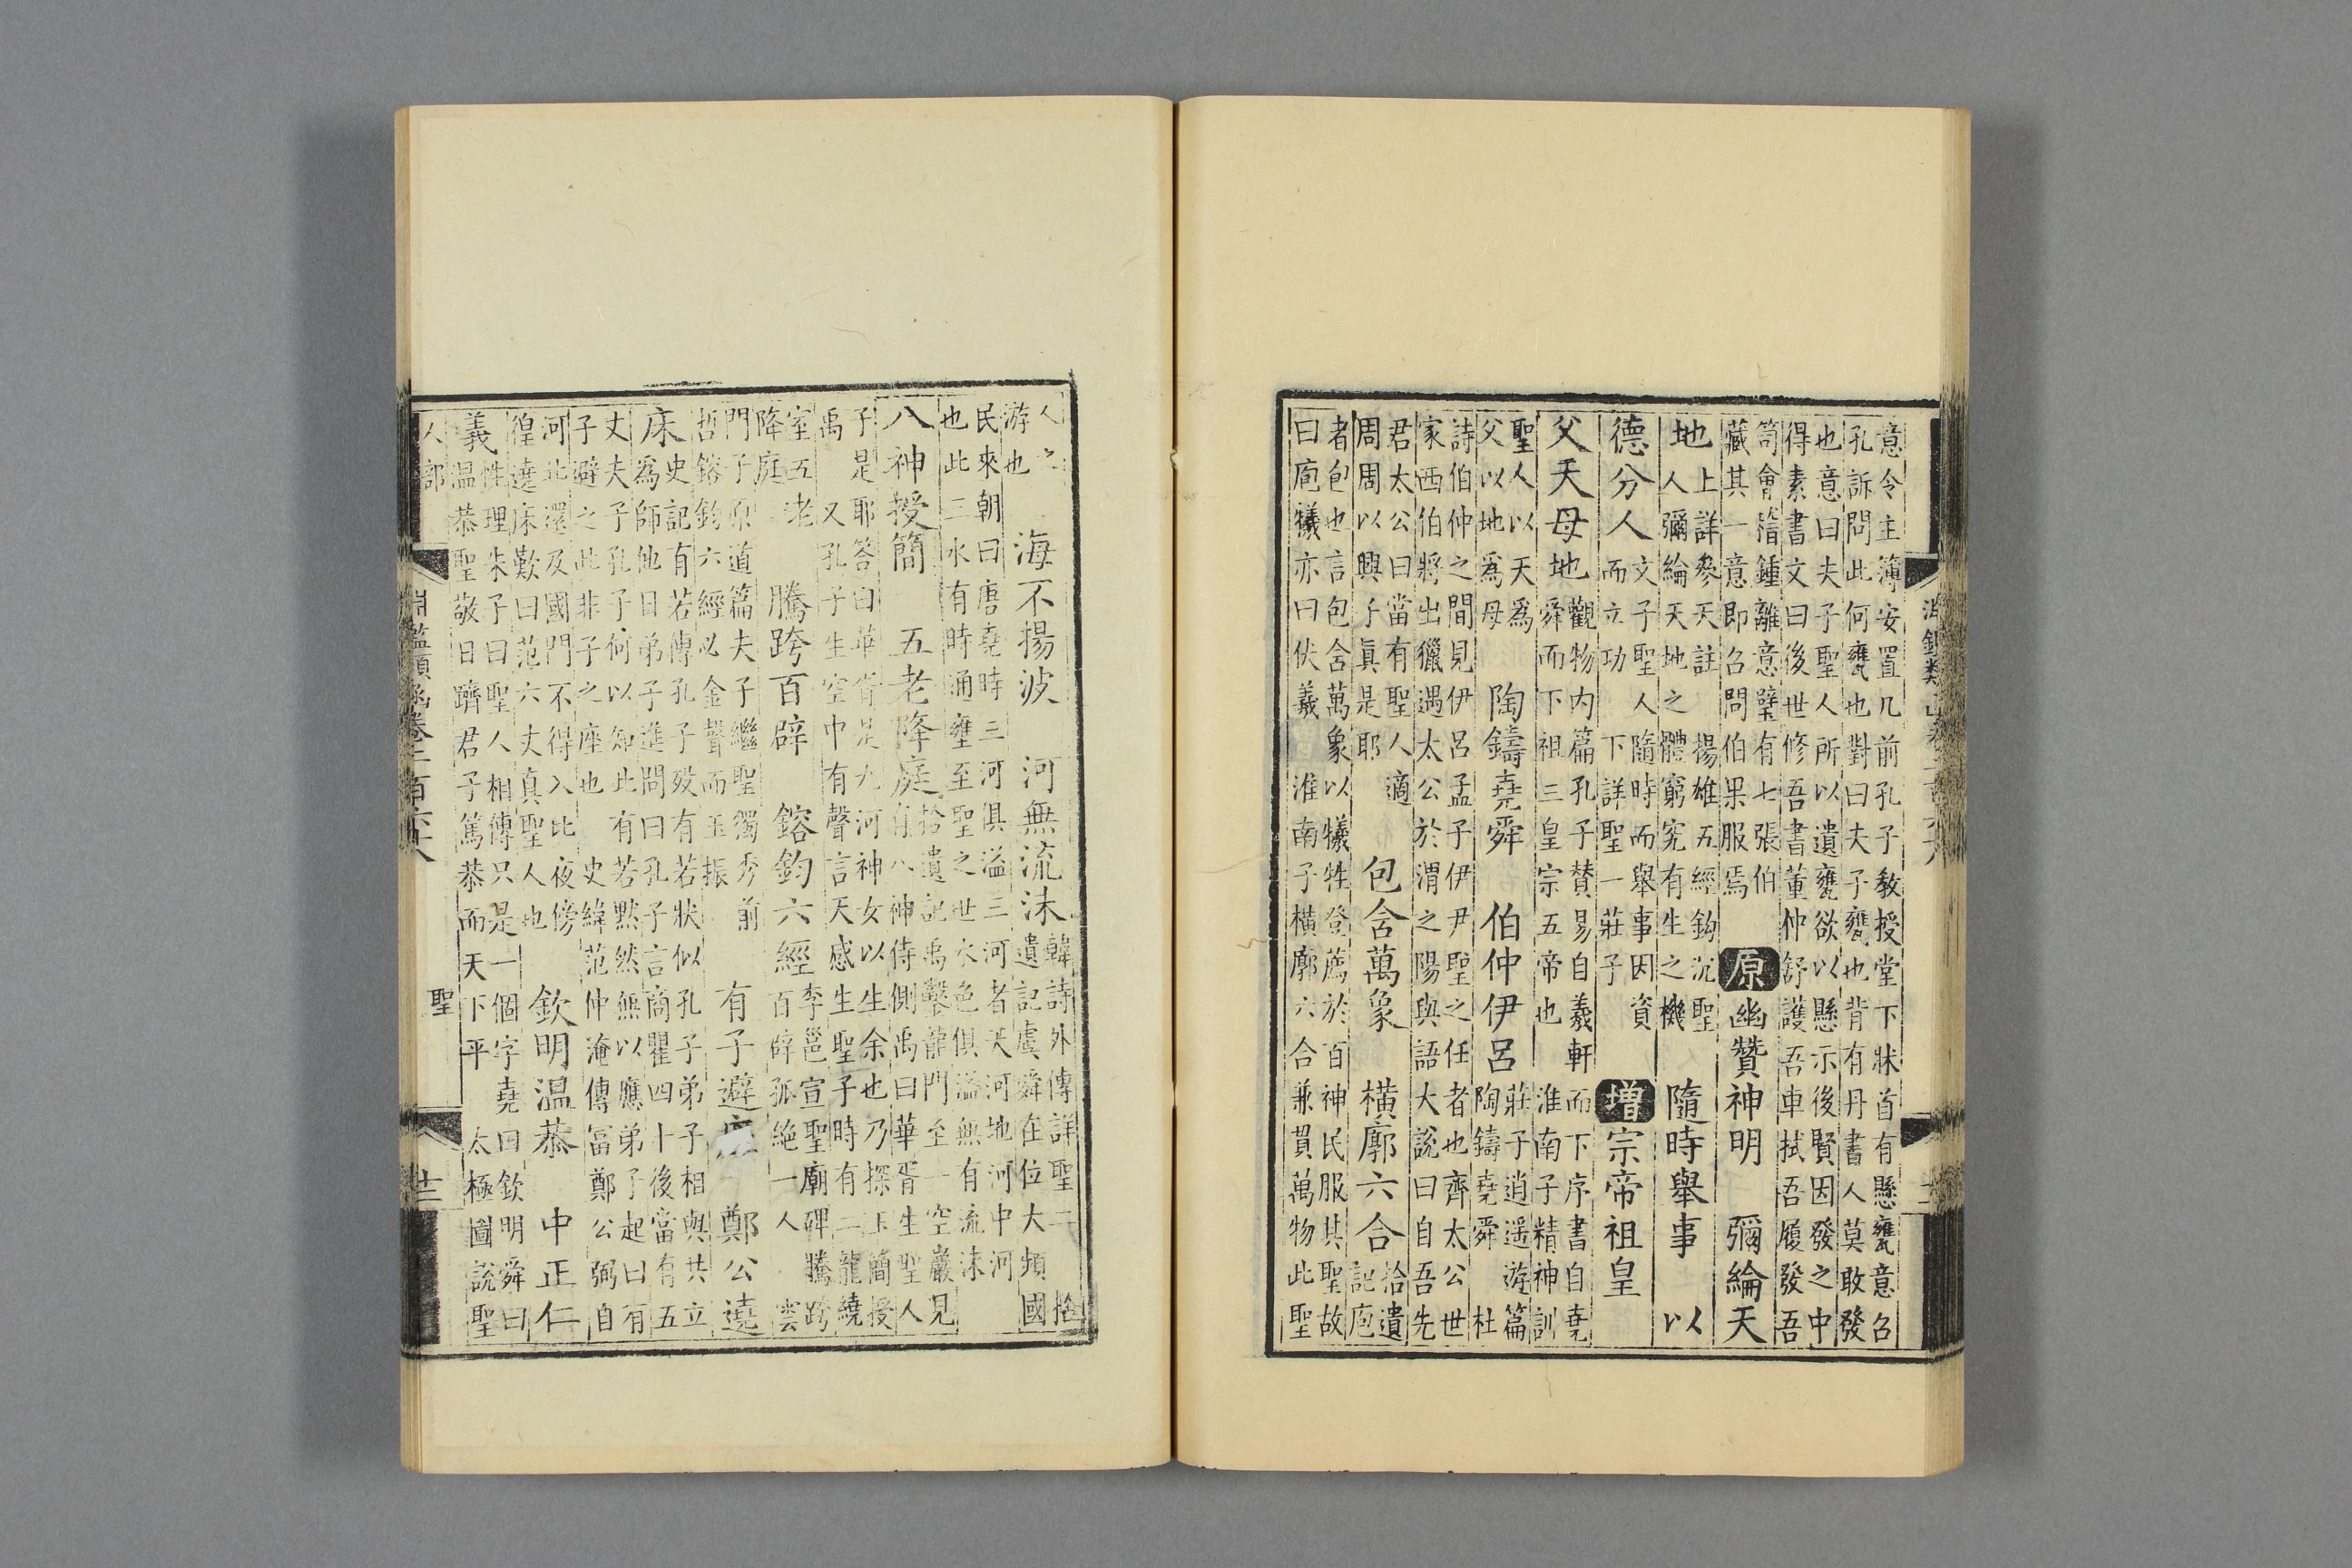 意令主簿安置几前孔子教授堂下牀首有懸甕意召
孔訴問此何甕也對曰夫子甕也背有丹書人莫敢發
也意曰夫子聖人所以遺甕欲以懸示後賢因發之中
得素書文曰後世修吾書董仲舒護吾車拭吾履發吾
笥會稽鍾離意璧有七張伯
藏其一意即召問伯果服焉
原
幽贊神明 彌綸天
地
上詳參天註 揚雄五經鈎沉聖
人彌綸天地之體窮究有生之機
隨時舉事 以
德分人
文子聖人隨時而舉事因資
而立功 下詳聖一莊子
增
宗帝祖皇
父天母地
觀物内篇孔子贊易自羲軒而下序書自堯
舜而下祖三皇宗五帝也 淮南子精神訓
聖人以天爲
父以地爲母
陶鑄堯舜
伯仲伊呂
莊子逍遥游篇
陶鑄堯舜 杜
詩伯仲之間見伊呂孟子伊尹聖之任者也齊太公世
家西伯將出獵遇太公於渭之陽與語大說曰自吾先
君太公曰當有聖人適
周周以興子真是耶
包含萬象 橫廓六合
拾遺
記庖
者包也言包含萬象以犧牲登薦於百神民服其聖故
曰庖犧亦曰伏羲 淮南子橫廓六合兼貫萬物此聖
人之
游也
海不揚波 河無流沫
韓詩外傳詳聖二 拾
遺記虞舜在位大頻國
民來朝曰唐堯時三河俱溢三河者天河地河中河
也此三水有時通壅至聖之世水色俱溢無有流沫
八神授簡 五老降庭
拾遺記禹鑿龍門至一空巖見
有八神侍側禹曰華胥生聖人
子是耶答曰華胥是九河神女以生余也乃探玉簡授
禹 又孔子生空中有聲言天感生聖子時有二龍繞
室五老
降庭
騰跨百辟 鎔鈞六經
李邕宣聖廟碑騰跨
百辟孤絶一人 雲
門子原道篇夫子繼聖獨秀前
哲鎔鈞六經必金聲而玉振
有子避席 鄭公遶
床
史記有若傳孔子歿有若狀似孔子弟子相與共立
爲師他日弟子進問曰孔子言商瞿四十後當有五
丈夫子孔子何以知此有若默然無以應弟子起曰有
子避之此非子之座也 史緯范仲淹傳富鄭公弼自
河北還及國門不得入比夜傍
徨遶床歎曰范六丈真聖人也
欽明温恭 中正仁
義
性理朱子曰聖人相傳只是一個字堯曰欽明舜曰
温恭聖敬日躋君子篤恭而天下平 太極圖說聖
人部
淵鑑類函卷二百六十八
聖